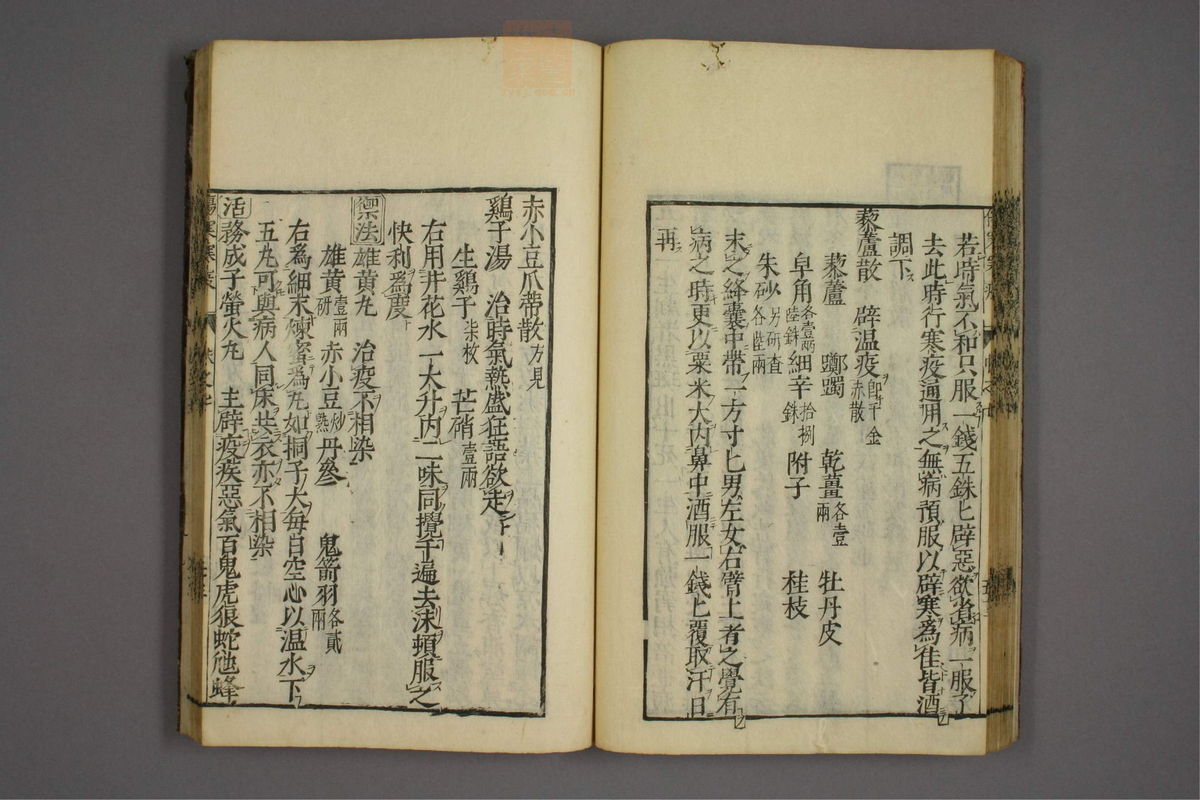 若時氣不和只服一錢五銖匕辟惡欲省病一服了
去此時行寒疫通用之無病預服以辟寒爲佳皆酒
調下
藜蘆散 辟温疫 卽千金赤散
藜蘆 躑躅 乾薑各壹兩 牡丹皮
皁角各壹兩陸銖 細辛拾捌銖 附子 桂枝
朱砂另研 各陸兩
末之絳囊中帶一方寸匕男左女右臂上者之覺有
病之時更以粟米大内鼻中酒服一錢匕覆取汗日
再
赤小豆瓜蔕散方見
鷄子湯 治時氣熱盛狂語欲走
生鷄子柒枚 芒硝壹兩
右用井花水一大升内二味同攪千遍去沫頓服之
快利爲度
禦法 雄黄丸 治疫不相染
雄黄壹兩研 赤小豆炒熟 丹參 鬼箭羽各貳兩
右爲細末煉蜜爲丸如桐子大每日空心以温水下
五丸可與病人同床共衣亦不相染
活 務成子螢火丸 主辟疫疾惡氣百鬼虎狼蛇虺蜂